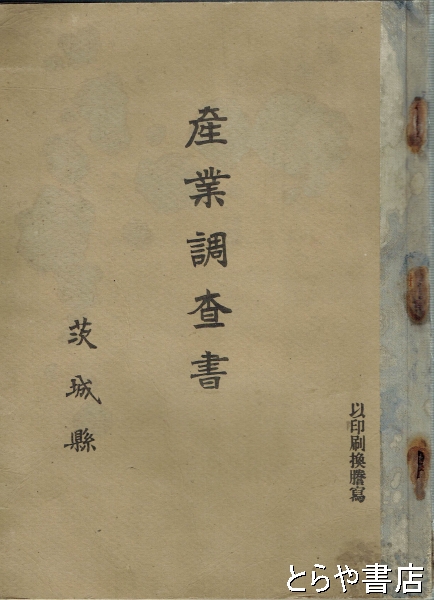 以印刷換謄寫
産業調查書
茨城縣
とらや書店